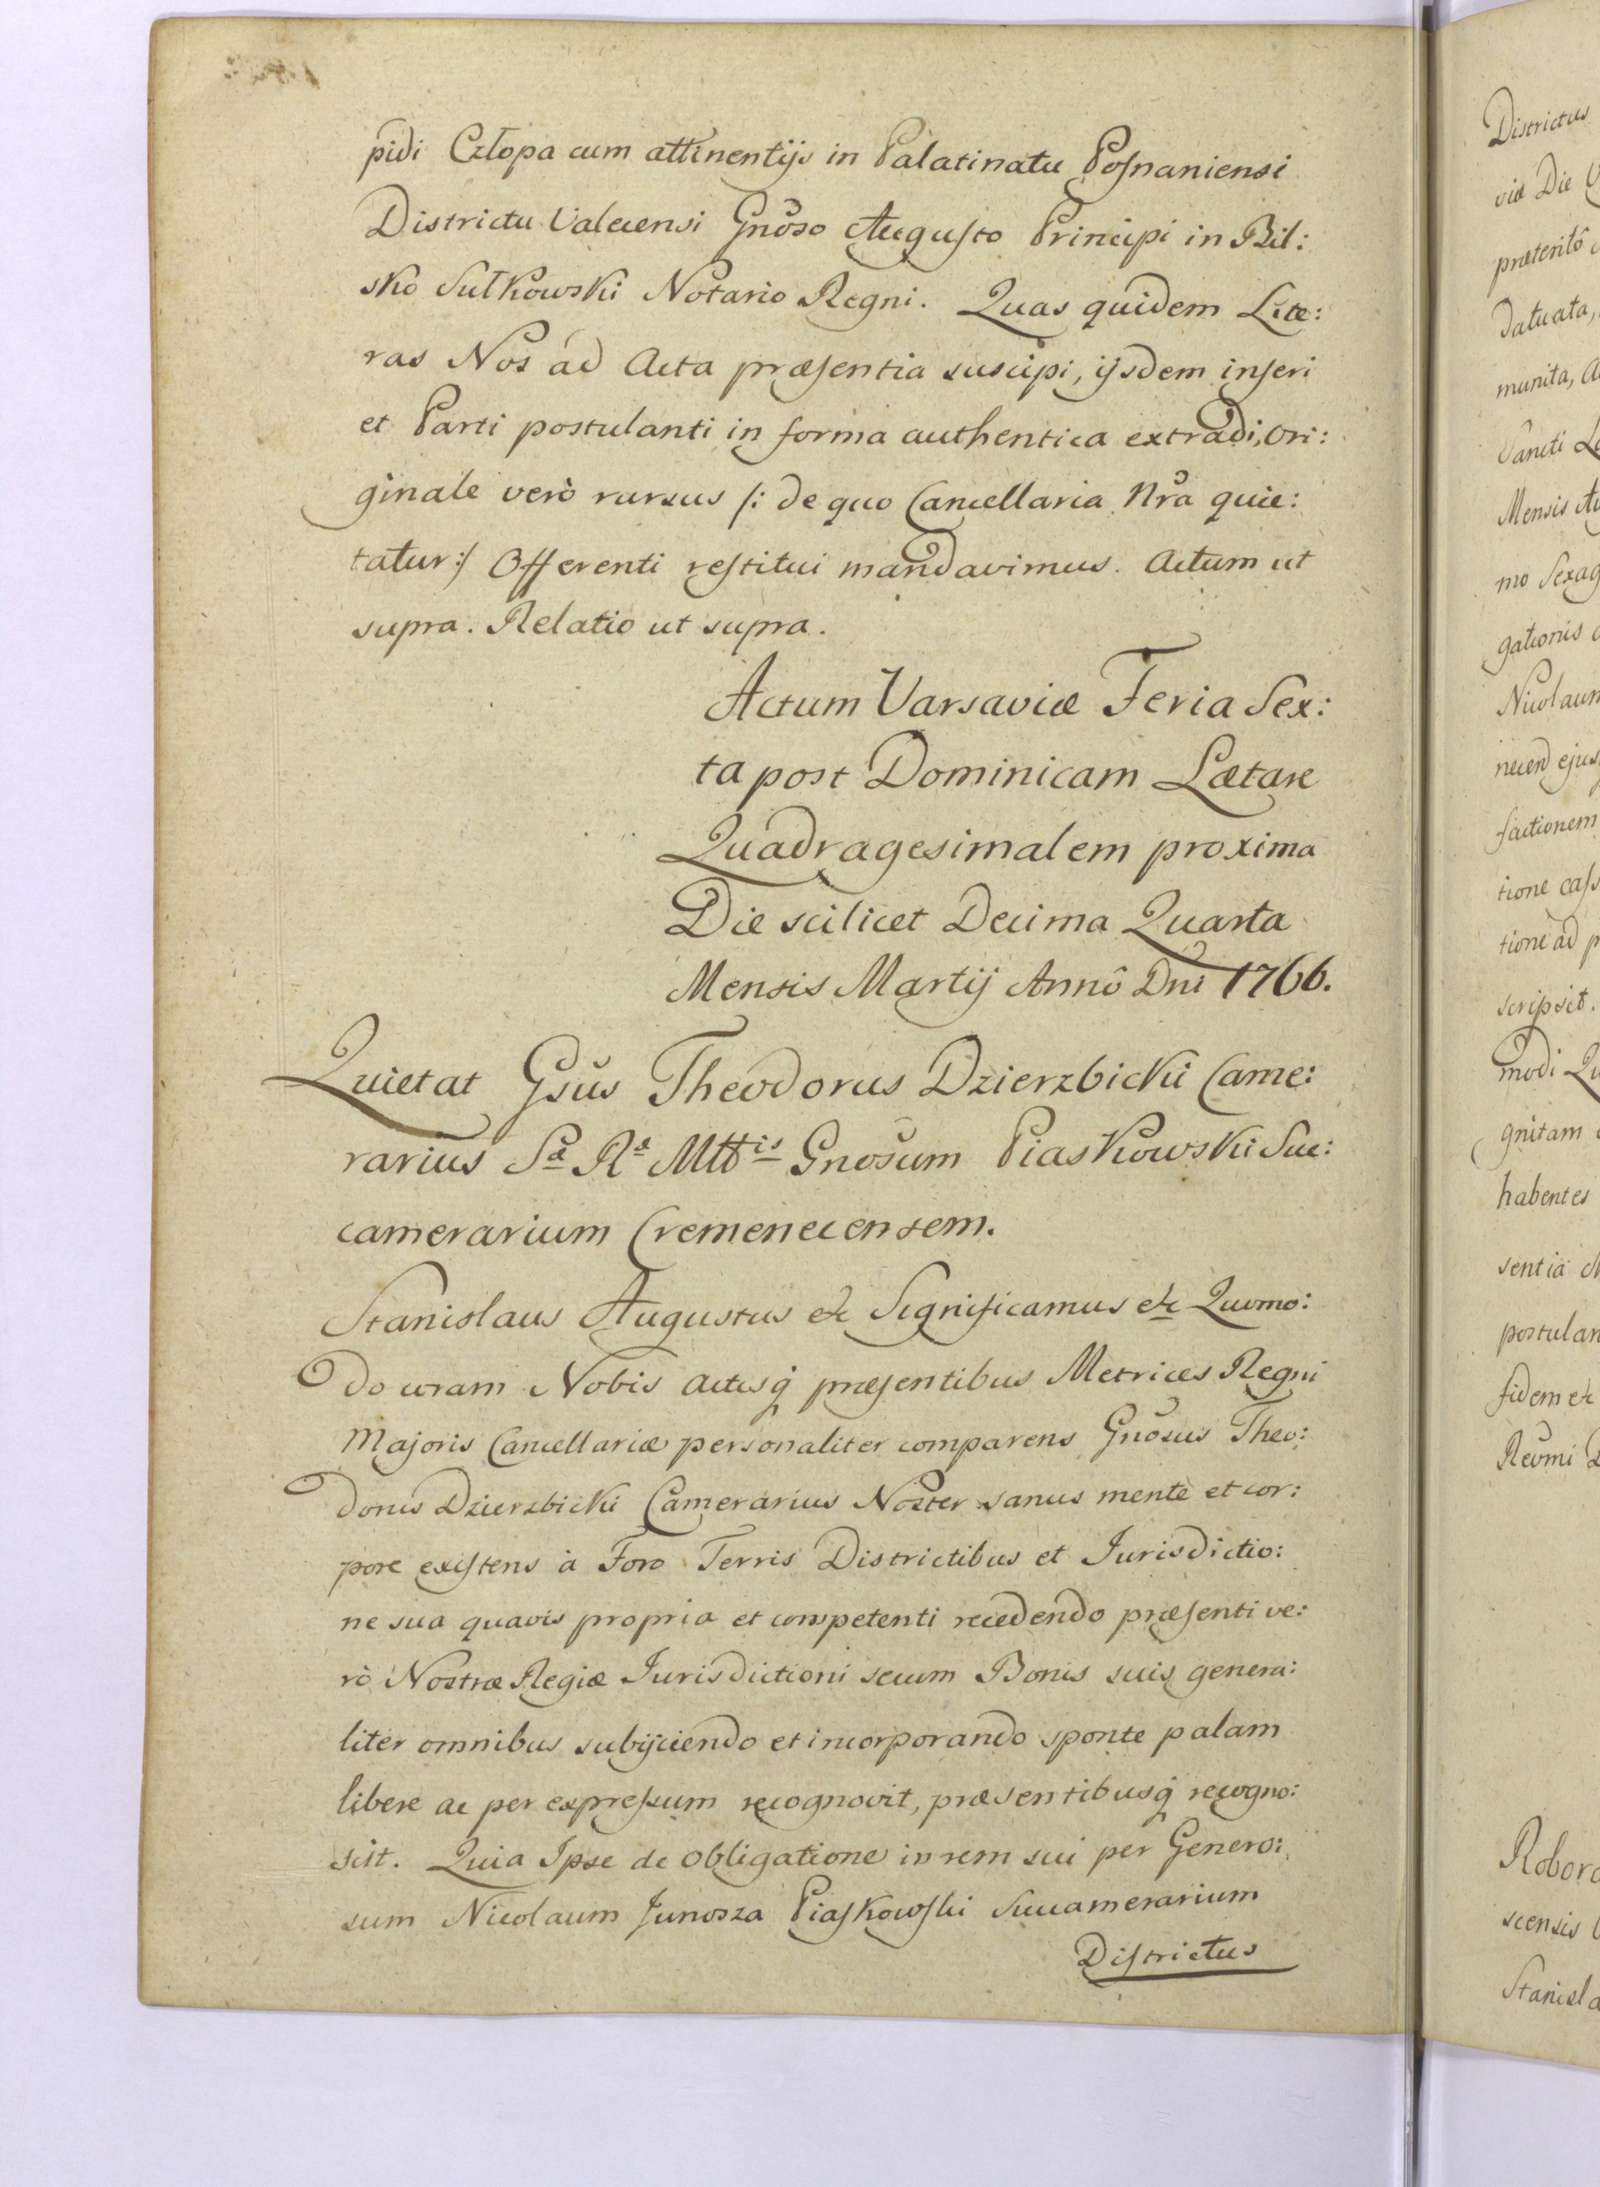 pidi Człopa cum attinentijs in Palatinatu Posnaniensi
Districtu Valecensi Gnoso Augusto Principi in Bil:
sko Sułkowski Notario Regni. Quas quidem Lite:
ras Nos ad Acta præsentia suscipi, ijsdem inseri
et Parti postulanti in forma authentica extradi, Ori:
ginale verò rursus /: de quo Cancellaria Nra quie:
tatur :/ Offerenti restitui mandavimus. Actum ut
supra. Relatio ut supra.
Actum Varsaviæ Feria Sex:
ta post Dominicam Lætare
Quadragesimalem proxima
Die scilicet Decima Quarta
Mensis Martij Annô Dni 1766.
Quietat Gsus Theodorus Dzierzbicki Came:
rarius Sæ Ræ Mttis Gnosum Piaskowski Suc:
camerarium Cremenecensem.
Stanislaus Augustus etc Significamus etc Quomo:
do coram Nobis Actisq præsentibus Metrices Regni
Majoris Cancellariæ personaliter comparens Gnosus Theo:
dorus Dzierzbicki Camerarius Noster sanus mente et cor:
pore existens à Foro Terris Districtibus et Jurisdictio:
ne sua quavis propria et competenti recedendo præsenti ve:
rò Nostræ Regiæ Jurisdictioni secum Bonis suis genera:
liter omnibus subijciendo et incorporando sponte palam
libere ac per expressum recognovit, præsentibusq recogno:
scit. Quia Ipse de obligatione in rem sui per Genero:
sum Nicolaum Junosza Piaskowski Succamerarium
Districtus
Districtus
viæ Die
præteritô
datuata,
munita,
Sancti
Mensis
mo Sexag
gationis
Nicolaum
necend ejus
factionem
tione cass
tione ad
scripsit.
modi
gnitam
habentes
sentia
postulan
fidem etc
Revmi
Robora
scensis
Stanisla